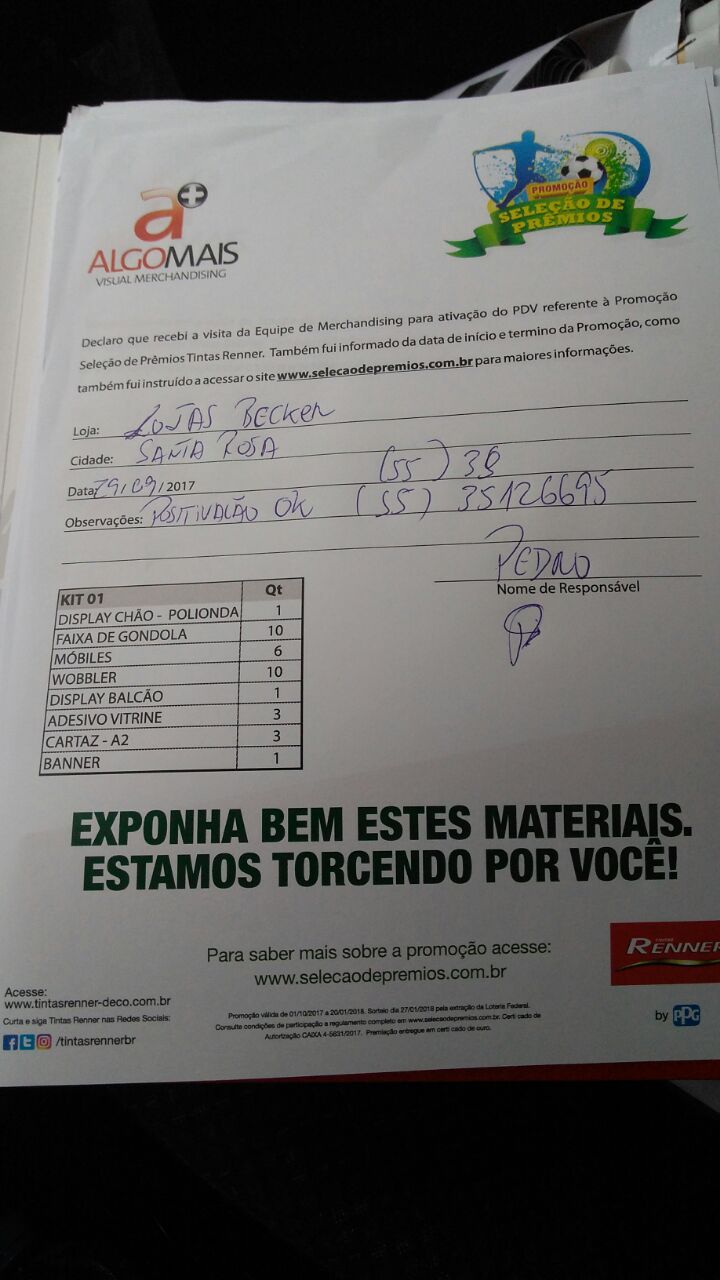 a+
ALGOMAIS
VISUAL MERCHANDISING
PROMOÇÃO
SELEÇÃO DE
PRÊMIOS
Declaro que recebi a visita da Equipe de Merchandising para ativação do PDV referente à Promoção
Seleção de Prêmios Tintas Renner. Também fui informado da data de início e termino da Promoção, como
também fui instruído a acessar o site www.selecaodepremios.com.br para maiores informações.
Loja: LOJAS BECKER
Cidade: SANTA ROSA
(55) 38
Data: 29/09/2017
Observações: POSITIVAÇÃO OK (55) 35126695
PEDRO
Nome de Responsável
KIT 01 Qt
DISPLAY CHÃO - POLIONDA 1
FAIXA DE GONDOLA 10
MÓBILES 6
WOBBLER 10
DISPLAY BALCÃO 1
ADESIVO VITRINE 3
CARTAZ - A2 3
BANNER 1
EXPONHA BEM ESTES MATERIAIS.
ESTAMOS TORCENDO POR VOCÊ!
Para saber mais sobre a promoção acesse:
www.selecaodepremios.com.br
RENNER
Acesse:
www.tintasrenner-deco.com.br
Curta e siga Tintas Renner nas Redes Sociais:
/tintasrennerbr
Promoção válida de 01/10/2017 a 20/01/2018. Sorteio dia 27/01/2018 pela extração da Loteria Federal.
Consulte condições de participação e regulamento completo em www.selecaodepremios.com.br. Certi cado de
Autorização CAIXA 4-5631/2017. Premiação entregue em certi cado de ouro.
by PPG